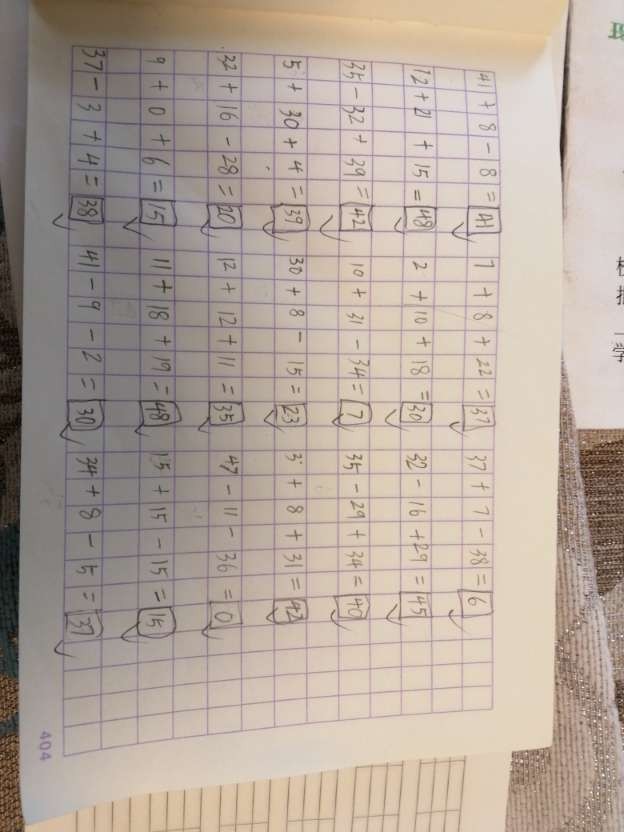 41 + 8 - 8 = 41 7 + 8 + 22 = 37 37 + 7 - 38 = 6
12 + 21 + 15 = 48 2 + 10 + 18 = 30 32 - 16 + 29 = 45
35 - 32 + 39 = 42 10 + 31 - 34 = 7 35 - 29 + 34 = 40
5 + 30 + 4 = 39 30 + 8 - 15 = 23 3 + 8 + 31 = 42
32 + 16 - 28 = 20 12 + 12 + 11 = 35 47 - 11 - 36 = 0
9 + 0 + 6 = 15 11 + 18 + 19 = 48 15 + 15 - 15 = 15
37 - 3 + 4 = 38 41 - 9 - 2 = 30 34 + 8 - 5 = 37
404
学